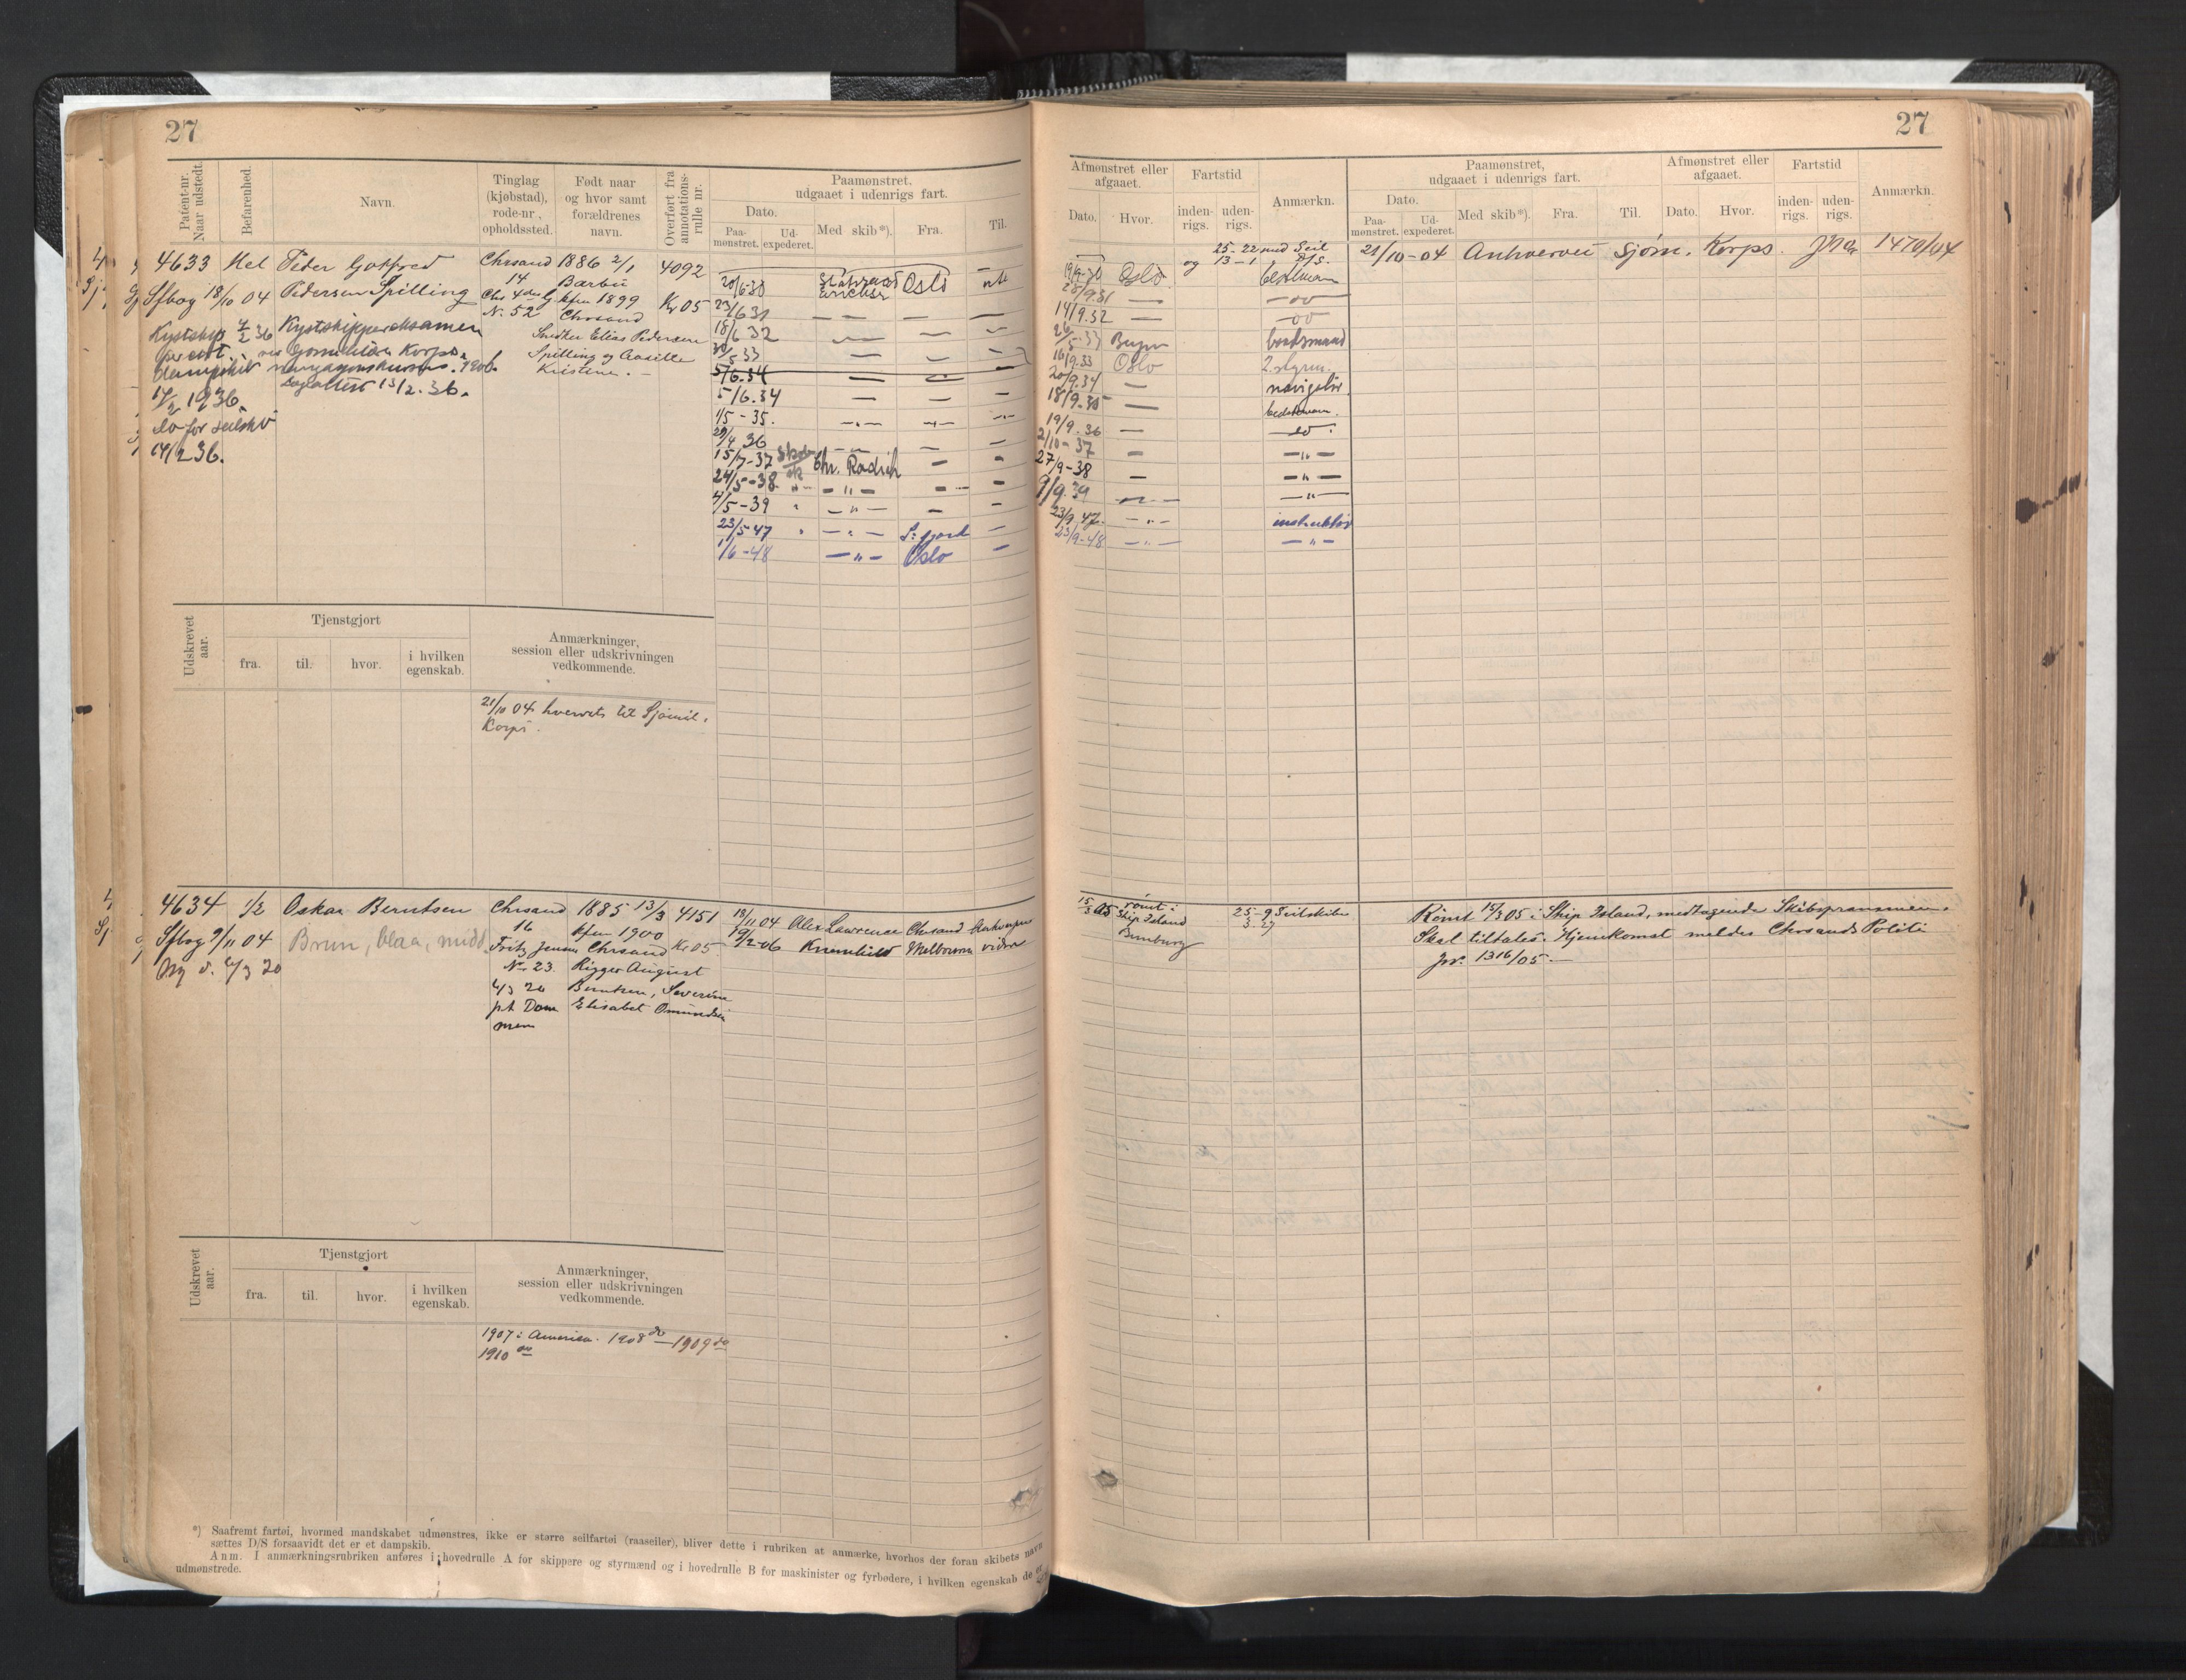 27
Patent-nr. Naar udstedt.
Befarenhed.
Navn.
Tinglag (kjøbstad), rode-nr., opholdssted.
Født naar og hvor samt forældrenes navn.
Overført fra annotations-rulle nr.
Paamønstret, udgaaet i udenrigs fart.
Dato.
Paa-mønstret.
Ud-expederet.
Med skib*).
Fra.
Til.
4633 Hel Peder Gotfred Chrsand 1886 2/1 4092
14 Barbu
Sfbog 18/10 04 Pedersen Spilling
kfm 1899 Kr 05
No. 52 Chrsand
Kystskippereksamen
Snedker Elias Pedersen
Spilling og Aasille
Kristene. -
13/2.36.
17/2 1936.
do for seilsk.
14/2 36.
20/6 30 Statsraad Erichsen Oslo
23/6 31 — — —
18/6 32 — —
30/5 33 — — —
5/6.34 — — —
5/6.34 — — —
1/5-35. — — —
29/4 36 — — —
15/7-37 Chr. Radich — —
24/5-38 — " — — —
4/5-39 — " — — —
23/5-47 — " — S:fjord —
1/6-48 — " — Oslo —
Udskrevet aar.
Tjenstgjort
fra.
til.
hvor.
i hvilken egenskab.
Anmærkninger, session eller udskrivningen vedkommende.
21/10 04 hvervet til Sjømil.
Korps.
4634 1/2 Oskar Berntsen Chrsand 1885 13/3 4151
16 kfm 1900
Sfbog 9/11 04 Brun, blaa, midd. Fritz Jensen Chrsand Kr 05
No 23. Rigger August
4/3 20 Berntsen, Severine
pt Dommen Elisabet Omundsen
Alex Lawrence Chrsand
19/2-06 Melbourne vidre
Udskrevet aar.
Tjenstgjort
fra.
til.
hvor.
i hvilken egenskab.
Anmærkninger, session eller udskrivningen vedkommende.
1907 i America. 1908 do — 1909 do
1910 do
*) Saafremt fartøi, hvormed mandskabet udmønstres, ikke er større seilfartøi (raaseiler), bliver dette i rubriken at anmærke, hvorhos der foran skibets navn
sættes D/S forsaavidt det er et dampskib.
Anm. I anmærkningsrubriken anføres i hovedrulle A for skippere og styrmænd og i hovedrulle B for maskinister og fyrbødere, i hvilken egenskab de er
udmønstrede.
27
Afmønstret eller afgaaet.
Dato.
Hvor.
Fartstid
inden-rigs.
uden-rigs.
Anmærkn.
Paamønstret, udgaaet i udenrigs fart.
Dato.
Paa-mønstret.
Ud-expederet.
Med skib*).
Fra.
Til.
Afmønstret eller afgaaet.
Dato.
Hvor.
Fartstid
inden-rigs.
uden-rigs.
Anmærkn.
25-22 med Seil
og 13-1 D/S.
21/10-04 Anhvervet Sjøm. Korps. 1470/04
19/9-30 Oslo
28/9.31 — do
14/9.32 — do
26/5-33 Bergen baadsmand
16/9.33 Oslo 2. styrm.
20/9.34 — navigatør.
18/9.35 —
19/9.36 — do.
2/10-37 — — " —
27/9-38 — — " —
9/9.39 — — " —
23/9.47. — " — instruktør
23/9-48 — " — — " —
15/3 05 rømt i Ship Island
25-9 Seilskibe
3-27
Rømt 15/3 05 i Ship Island, medtagende
Skal tiltales. Hjemkomst meldes Chrsands Politi
Jnr. 1316/05. —